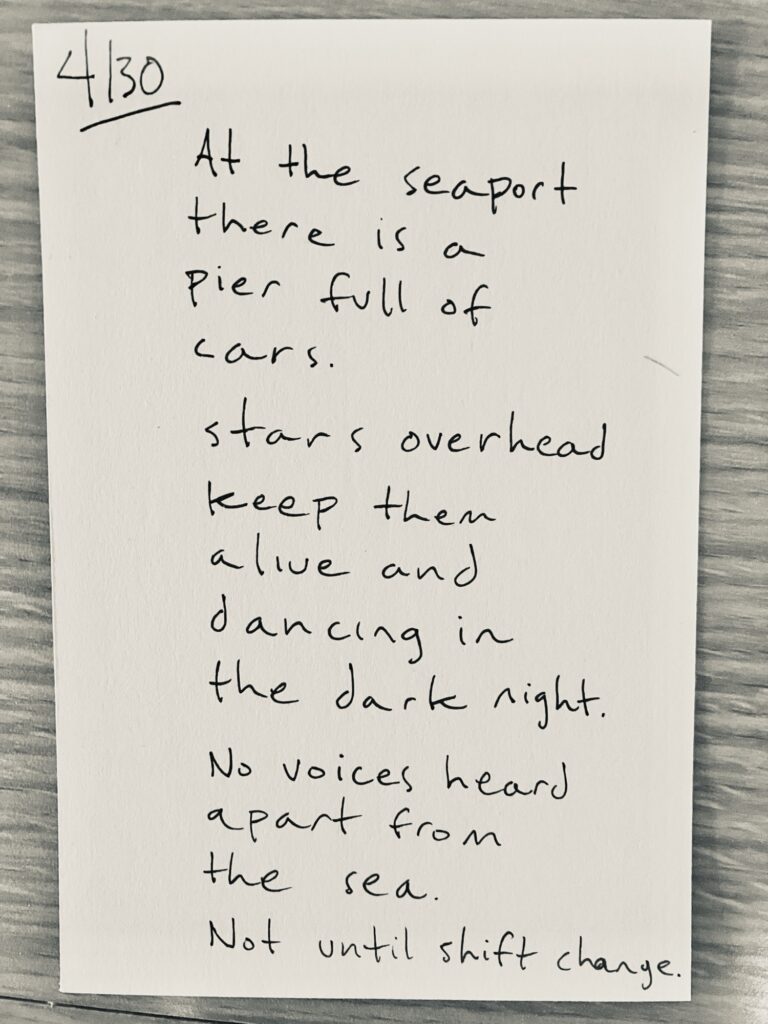 4/30
At the seaport
there is a
pier full of
cars.
stars overhead
keep them
alive and
dancing in
the dark night.
No voices heard
apart from
the sea.
Not until shift change.